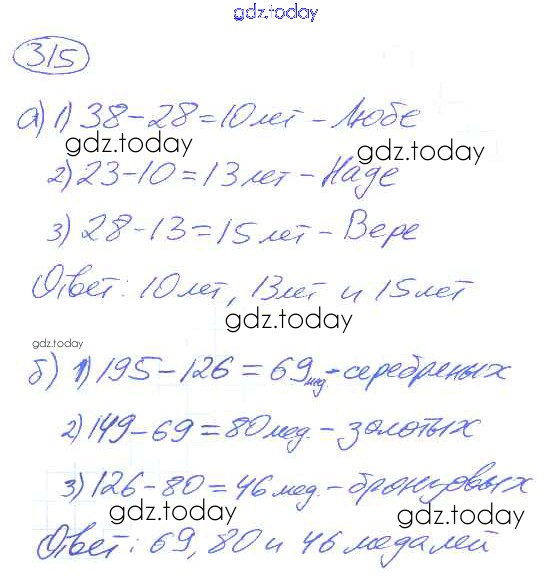 gdz.today
315
а) 1) 38-28=10 лет - Любе
gdz.today gdz.today
2) 23-10=13 лет - Наде
3) 28-13=15 лет - Вере
Ответ: 10 лет, 13 лет и 15 лет
gdz.today
gdz.today
б) 1) 195-126=69 мед.-серебреных
2) 149-69=80 мед.- золотых
3) 126-80=46 мед.- бронзовых
gdz.today gdz.today
Ответ: 69, 80 и 46 медалей